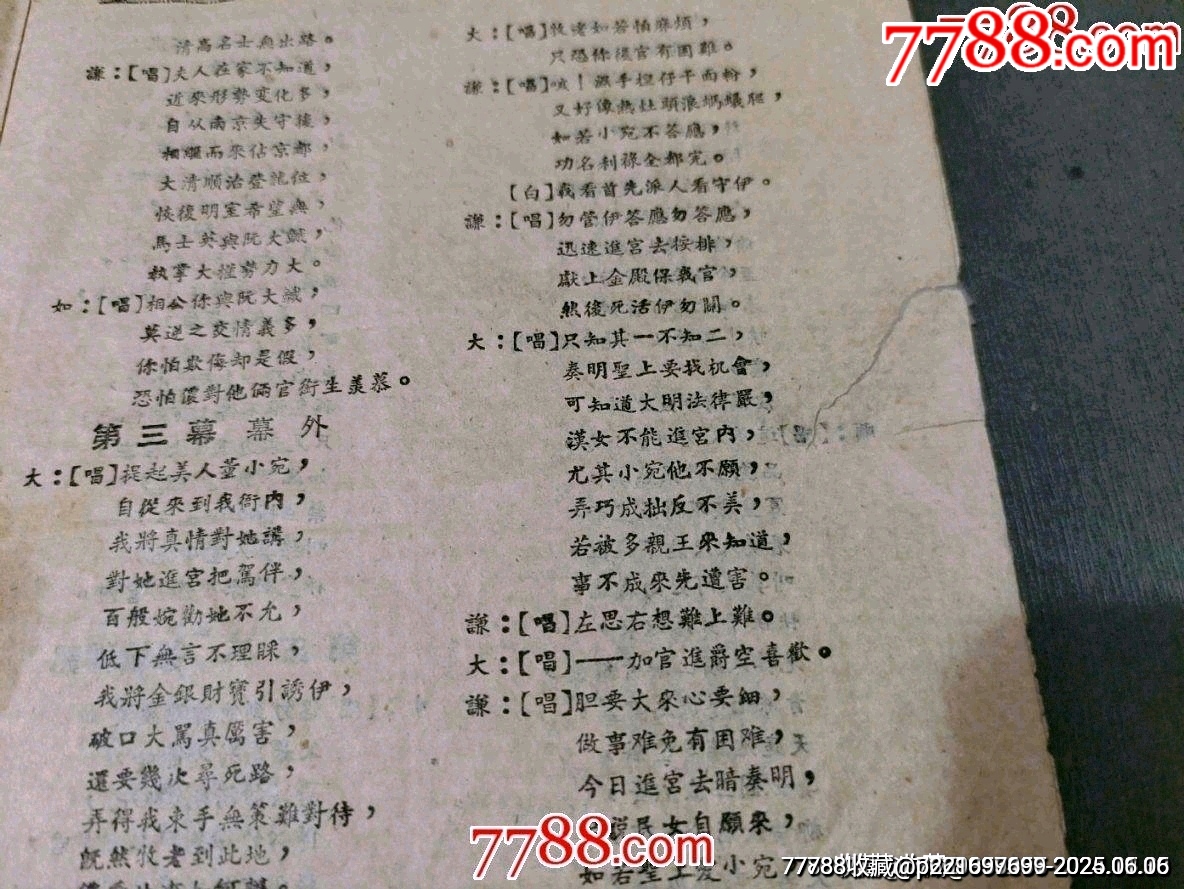 清高名士無出路。
謙：[唱]夫人在家不知道，
近來形勢变化多，
自从南京失守後，
相繼而來佔京都，
大清順治登龍位，
恢復明室希望無，
馬士英與阮大鋮，
执掌大权勢力大。
如：[唱]相公你與阮大鋮，
莫逆之交情義多，
你怕欺侮却是假，
恐怕儂對他倆官銜生羡慕。
第三幕 幕外
大：[唱]提起美人董小宛，
自從來到我衙內，
我將真情對她講，
對她進宮把駕伴，
百般婉勸她不允，
低下無言不理睬，
我將金銀財寶引誘伊，
破口大罵真厲害，
還要幾次尋死路，
弄得我束手無策難對待，
既然牧老到此地，
大：[唱]牧老如若怕麻煩，
只恐你後官有困难。
謙：[唱]哎！濕手捏仔干面粉，
又好像熱灶頭浪螞蟻爬，
如若小宛不答應，
功名利祿全都完。
[白]我看首先派人看守伊。
謙：[唱]勿管伊答應勿答應，
迅速進宮去按排，
獻上金殿保我官，
然後死活伊勿關。
大：[唱]只知其一不知二，
奏明聖上要找机會，
可知道大明法律嚴，
漢女不能進宮內，
尤其小宛他不願，
弄巧成拙反不美，
若被多親王來知道，
事不成來先遭害。
謙：[唱]左思右想難上難。
大：[唱]——加官進爵空喜歡。
謙：[唱]胆要大來心要細，
做事难免有困难，
今日進宮去暗奏明，
說民女自願來，
如若聖上爱小宛
7788.com
7788.com
7788.com
77788收藏@p221697699-2025.06.06